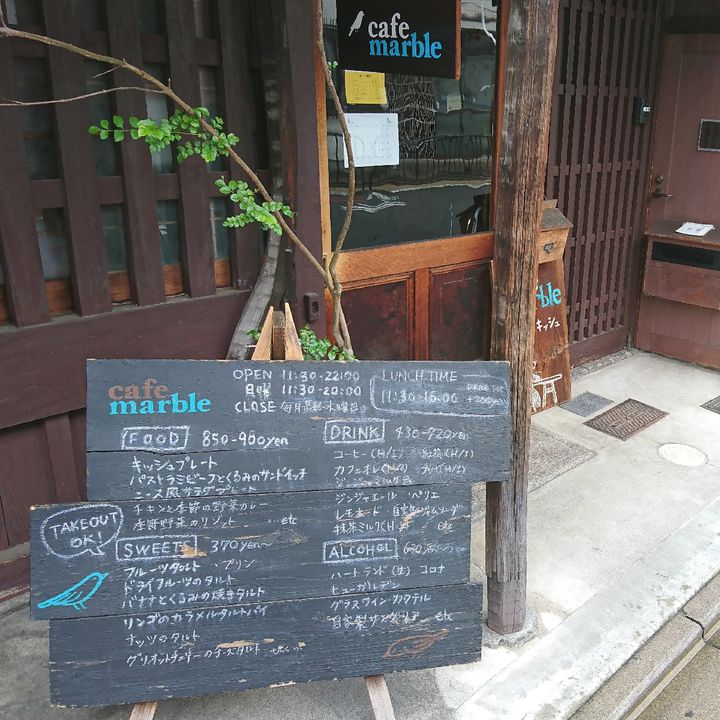 cafe
marble
cafe
marble
OPEN 11:30-22:00
日曜 11:30-20:00
CLOSE 毎月最終水曜日
LUNCH TIME
11:30-15:00
DRINK
+200yen
FOOD 850-900yen
キッシュプレート
パストラミビーフとくるみのサンドイッチ
ニース風サラダプレート
チキンと季節の野菜カレー
季節野菜のリゾット …etc
TAKEOUT
OK!
SWEETS 370yen~
フルーツタルト ・プリン
ドライフルーツのタルト
バナナとくるみの焼きタルト
リンゴのカラメルタルトパイ
ナッツのタルト
グリオットチェリーのチーズタルト etc…
DRINK 430-720yen
コーヒー(H/I) 紅茶(H/I)
カフェオレ(H/I) チャイ(H/I)
ジンジャエール ペリエ
レモネード 自家製ジンジャーソーダ
抹茶ミルク(H/I) etc
ALCOHOL
ハートランド(生) コロナ
ヒューガルデン
グラスワイン・カクテル
自家製サングリア etc
ble
キッシュ